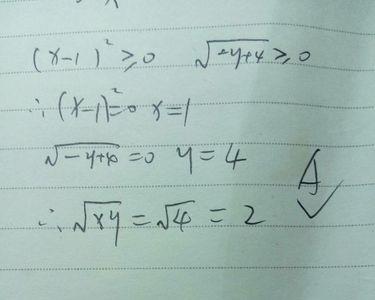 (x-1)²≥0 √(-y+4)≥0
∴(x-1)²=0 x=1
√(-y+4)=0 y=4
∴√(xy)=√4=2
A✓